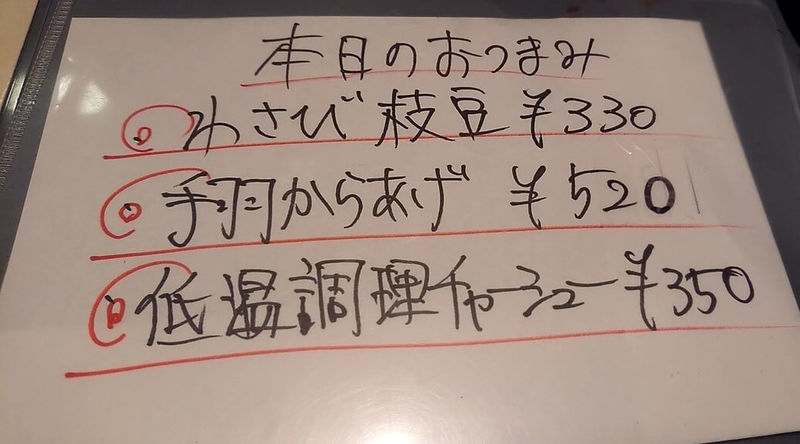 本日のおつまみ
わさび枝豆 ¥330
手羽からあげ ¥520
低温調理チャーシュー ¥350